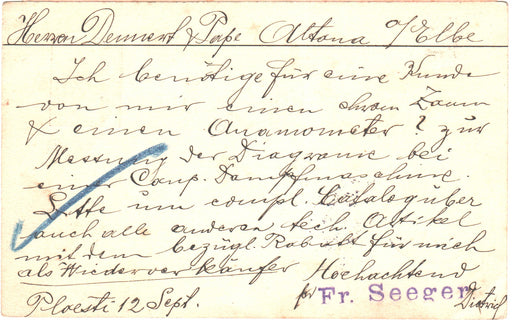 Herren Dennert & Pape Altona a/Elbe
Ich benötige für eine Kunde
von mir einen
& einen Anamometer? zur
Messung der Diagramme bei
einer Comp. Dampfmaschine.
Bitte um compl. Catalog über
auch alle anderen tech. Artikel
mit dem bezügl. Rabatt für mich
als Wiederverkäufer Hochachtend
Ploesti 12 Sept. pr Fr. Seeger
Dietrich